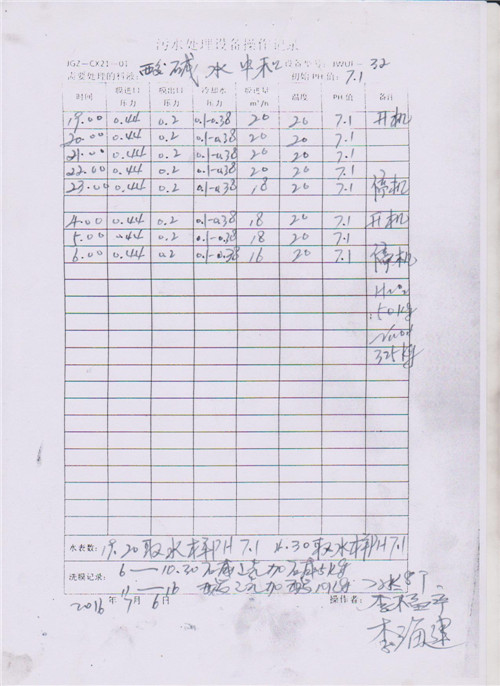 污水处理设备操作记录
JGZ-CX21-01 设备型号: IWUF-32
需要处理的料液: 酸碱水中和 初始PH值: 7.1
时间 膜进口压力 膜出口压力 冷却水压力 膜透量m³/h 温度 PH值 备注
19.00 0.44 0.2 0.1-0.38 20 20 7.1 开机
20.00 0.44 0.2 0.1-0.38 20 20 7.1
21.00 0.44 0.2 0.1-0.38 20 20 7.1
22.00 0.44 0.2 0.1-0.38 20 20 7.1
23.00 0.44 0.2 0.1-0.38 18 20 7.1 停机
4.00 0.44 0.2 0.1-0.38 18 20 7.1 开机
5.00 0.44 0.2 0.1-0.38 18 20 7.1
6.00 0.44 0.2 0.1-0.38 16 20 7.1 停机
50kg
325kg
水表数: 19.20取水样PH7.1 4.30取水样PH7.1
洗膜记录: 6—10.30
11—16
2016年7月6日 操作者:
李福建